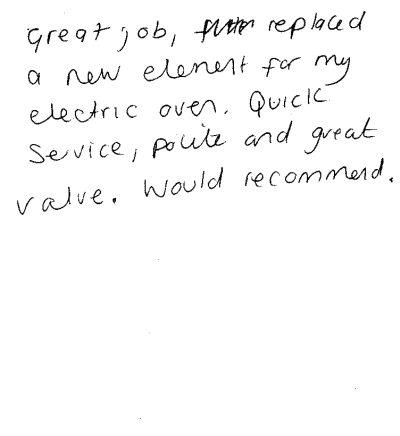 Great job, replaced
a new element for my
electric oven. Quick
Service, polite and great
value. Would recommend.